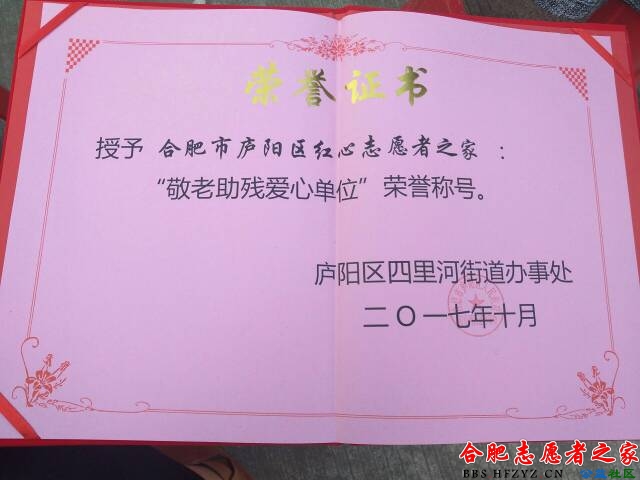 荣誉证书
授予 合肥市庐阳区红心志愿者之家：
“敬老助残爱心单位”荣誉称号。
庐阳区四里河街道办事处
二〇一七年十月
合肥志愿者之家
BBS HFZYZ CN
社区